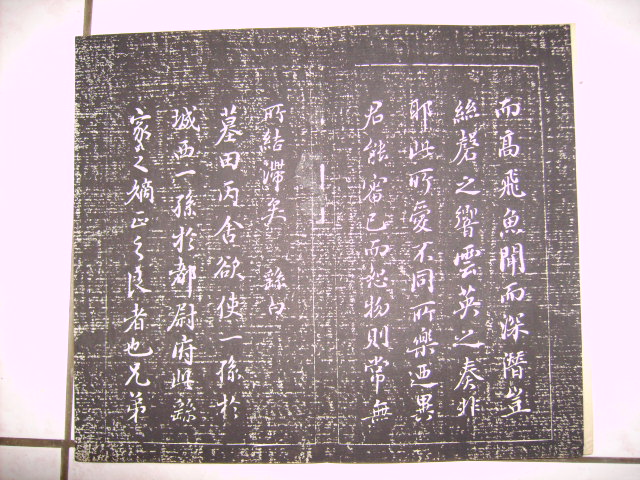 而高飛魚聞而深潛豈
絲磬之響雲英之奏非
耶此所愛不同所樂迺異
君能審己而恕物則常無
所結滯矣 繇白
墓田丙舍欲使一孫於
城西一孫於都尉府此繇
家之嫡正之良者也兄弟